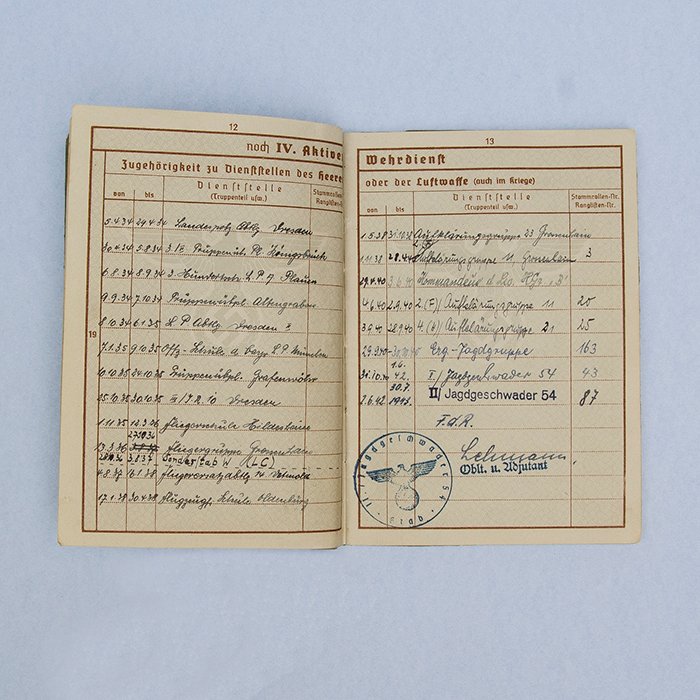 12
noch IV. Aktiver
Zugehörigkeit zu Dienststellen des Heeres
von bis Dienststelle (Truppenteil usw.) Stammrollen- Ranglisten-
19
5.4.34 29.4.34 Landespolz. Abtlg. Dresden
30.4.34 5.8.34 Truppenüb. Pl. Königsbrück
6.8.34 8.9.34 3. Hundertsch. L.P. Plauen
9.9.34 7.10.34 Truppenübpl. Altengrabow
8.10.34 6.1.35 L.P. Abtlg. Dresden
7.1.35 9.10.35 Offz. Schule L.P. München
10.10.35 24.10.35 Truppenübpl. Grafenwöhr
25.10.35 30.10.35 Dresden
1.11.35 12.3.36 Fliegerschule Hildesheim
27.10.36
13.3.36 Fliegergruppe Grossenhain
3.8.37 Sonderstab W (LC)
4.8.37 16.1.38 Fliegerersatzabtlg. Detmold
17.1.38 30.4.38 Schule Oldenburg
13
Wehrdienst
oder der Luftwaffe (auch im Kriege)
von bis Dienststelle (Truppenteil usw.) Stammrollen-Nr. Ranglisten-Nr.
1.5.38 31.10.38 Aufklärungsgruppe 23 Grossenhain
1.11.38 28.4.40 Aufklärungsgruppe 11 Grossenhain 3
29.4.40 3.6.40 Kommandeur d. Lw.
4.6.40 2.9.40 2.(F)/Aufklärungsgruppe 11 20
3.9.40 28.9.40 4.(H)/Aufklärungsgruppe 21 25
29.9.40 30.10.40 Erg.-Jagdgruppe 163
1.6.
31.10.40 42 I/Jagdgeschwader 54 43
30.7.
2.6.42 II/ Jagdgeschwader 54 87
F.d.R.
Lehmann
Oblt. u. Adjutant
II. Jagdgeschwader 54 · Stab ·